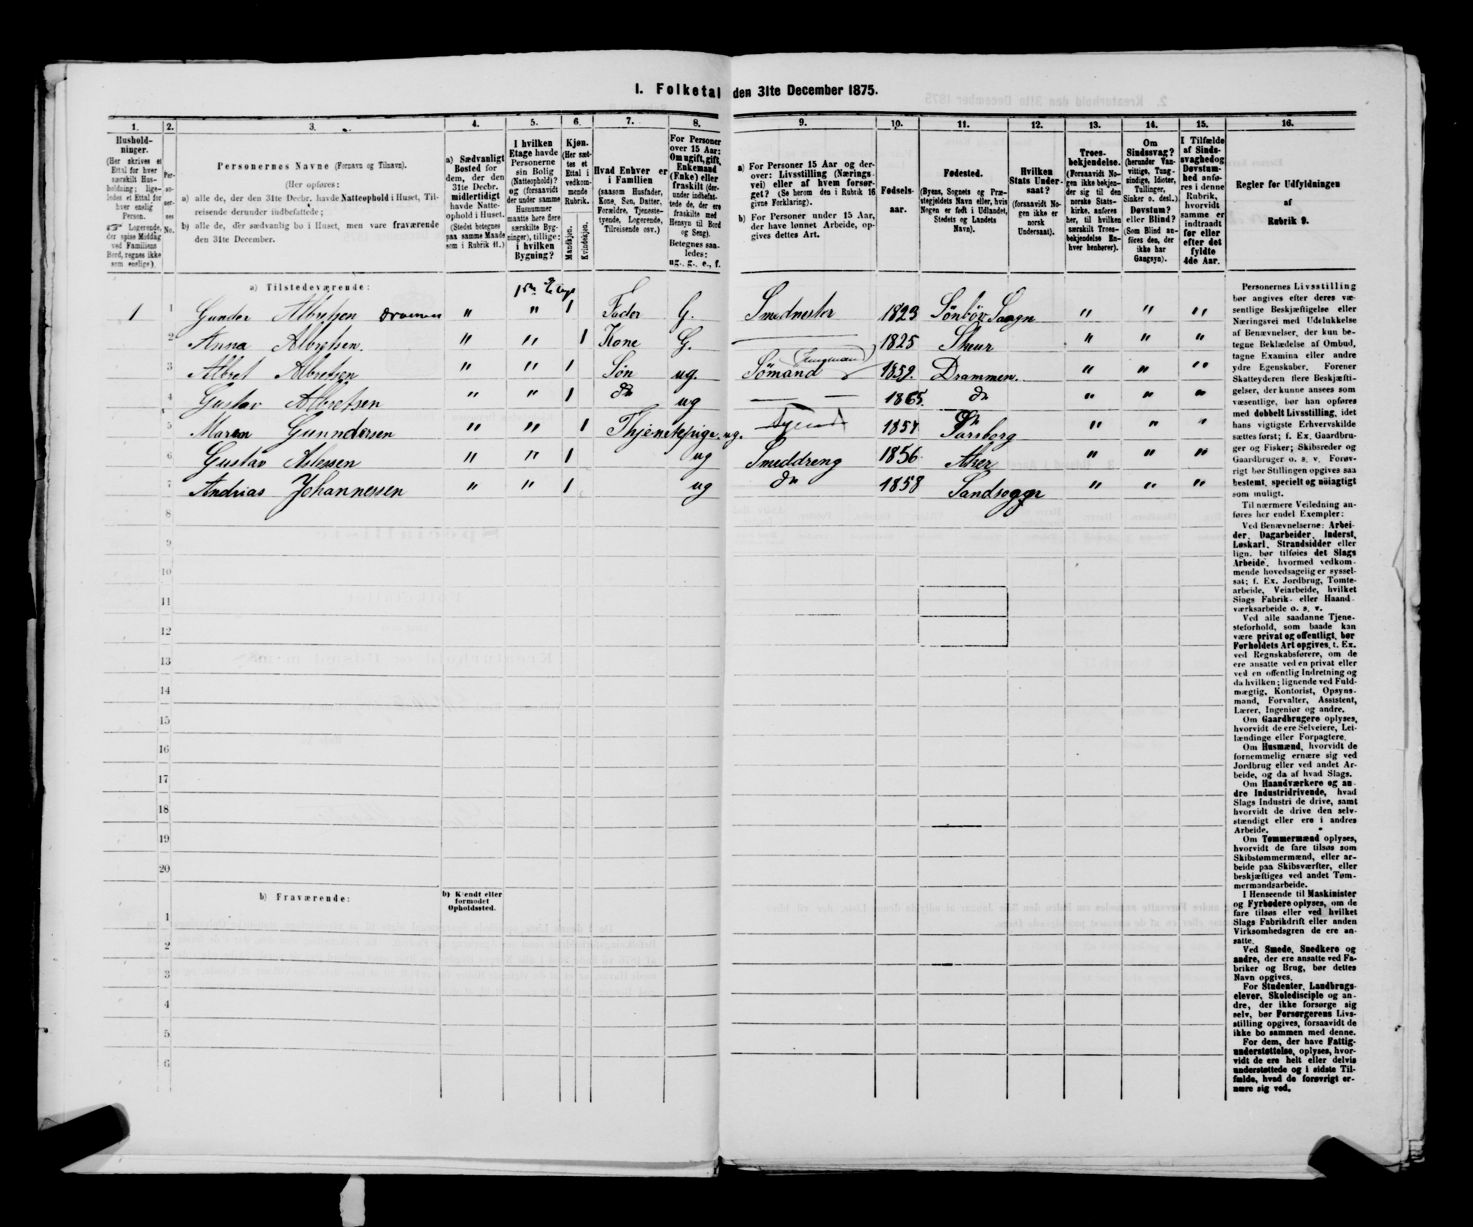 I. Folketal den 31te December 1875.
1. 2. 3. 4. 5. 6. 7. 8. 9. 10. 11. 12. 13. 14. 15. 16.
Husholdninger.
(Her skrives et
Ettal for hver
særskilt Husholdning;
ligeledes et Ettal for
hver enslig
Person.
☞ Logerende,
der spise Middag
ved Familiens
Bord, regnes ikke
som enslige).
Personernes No.
Personernes Navne (Fornavn og Tilnavn).
(Her opføres:
a) alle de, der den 31te Decbr. havde Natteophold i Huset, Tilreisende derunder indbefattede;
b) alle de, der sædvanlig bo i Huset, men vare fraværende
den 31te December.
a) Sædvanligt
Bosted for
dem, der den
31te Decbr.
midlertidigt
havde Natteophold i Huset.
(Stedet betegnes
paa samme Maade
som i Rubrik 11.)
I hvilken
Etage havde
Personerne
sin Bolig
(Natteophold)?
og (forsaavidt
der under samme
Husnummer
maatte høre flere
særskilte Bygninger), tillige:
i hvilken
Bygning?
Kjøn.
(Her sættes et
Ettal i
vedkommende
Rubrik.
Mandkjøn.
Kvindekjøn.
Hvad Enhver er
i Familien
(saasom Husfader,
Kone, Søn, Datter,
Forældre, Tjenestetyende, Logerende,
Tilreisende osv.)
For Personer
over 15 Aar:
Om ugift, gift,
Enkemand
(Enke) eller
fraskilt (derunder indbefattede de, der ere
fraskilte med
Hensyn til Bord
og Seng).
Betegnes saaledes:
ug., g., e., f.
a) For Personer 15 Aar og derover: Livsstilling (Næringsvei) eller af hvem forsørget? (Se herom den i Rubrik 16
givne Forklaring).
b) For Personer under 15 Aar,
der have lønnet Arbeide, opgives dettes Art.
Fødselsaar.
Fødested.
(Byens, Sognets og Præstegjeldets Navn eller, hvis
Nogen er født i Udlandet,
Stedets og Landets
Navn).
Hvilken
Stats Undersaat?
(forsaavidt Nogen ikke er
norsk
Undersaat).
Troesbekjendelse.
(Forsaavidt Nogen ikke bekjender sig til den
norske Statskirke, anføres
her, til hvilken
særskilt Troesbekjendelse Enhver henhører).
Om
Sindssvag?
(herunder Vanvittige, Tungsindige, Idioter,
Tullinger,
Sinker o. desl.)
Døvstum?
eller Blind?
(Som Blind anføres den, der
ikke har
Gangsyn).
I Tilfælde
af Sindssvaghed og
Døvstumhed anføres i denne
Rubrik,
hvorvidt
samme er
indtraadt
før eller
efter det
fyldte
4de Aar.
Regler for Udfyldningen
af
Rubrik 9.
a) Tilstedeværende:
1ste Etage
1 1 Gunder Albretsen Drammen " " 1 Fader G. Smedmester 1823 Sönböv Sogn " " "
2 Anna Albretsen. " " 1 Kone G. — 1825 " " "
3 Albret Albretsen " " 1 Søn ug. Sömand (Jungmand) 1859. Drammen. " " "
4 Gustav Albretsen " " 1 do ug — — 1865. do " " "
5 Maren Gundersen " " 1 Thjenestepige. ug. 1857 " " "
6 Gustav Aslessen " " 1 ug Smeddreng 1856 Aker " " "
7 Andrias Johannessen " " 1 ug do 1858 " " "
8
9
10
11
12
13
14
15
16
17
18
19
20
b) Fraværende:
b) Kjendt eller
formodet
Opholdssted.
1
2
3
4
5
6
Personernes Livsstilling
bør angives efter deres væsentlige Beskjæftigelse eller
Næringsvei med Udelukkelse
af Benævnelser, der kun betegne Beklædelse af Ombud,
tagne Examina eller andre
ydre Egenskaber. Forener
Skatteyderen flere Beskjæftigelser, der kunne ansees som
væsentlige, bør han opføres
med dobbelt Livsstilling, idet
hans vigtigste Erhvervskilde
sættes først; f. Ex. Gaardbruger og Fisker; Skibsreder og
Gaardbruger o. s. v. Forøvrigt bør Stillingen opgives saa
bestemt, specielt og nøiagtigt
som muligt.
Til nærmere Veiledning anføres her endel Exempler:
Ved Benævnelserne: Arbeider, Dagarbeider, Inderst,
Løskarl, Strandsidder eller
lign. bør tilføies det Slags
Arbeide, hvormed vedkommende hovedsagelig er sysselsat; f. Ex. Jordbrug, Tomtearbeide, Veiarbeide, hvilket
Slags Fabrik- eller Haandværksarbeide o. s. v.
Ved alle saadanne Tjenesteforhold, som baade kan
være privat og offentligt, bør
Forholdets Art opgives, t. Ex.
ved Regnskabsførere, om de
ere ansatte ved en privat eller
ved en offentlig Indretning og
da hvilken; lignende ved Fuldmægtig, Kontorist, Opsynsmand, Forvalter, Assistent,
Lærer, Ingeniør og andre.
Om Gaardbrugere oplyses,
hvorvidt de ere Selveiere, Leilændinge eller Forpagtere.
Om Husmænd, hvorvidt de
fornemmelig ernære sig ved
Jordbrug eller ved andet Arbeide, og da af hvad Slags.
Om Haandværkere og andre Industridrivende, hvad
Slags Industri de drive, samt
hvorvidt de drive den selvstændigt eller ere i andres
Arbeide.
Om Tømmermænd oplyses,
hvorvidt de fare tilsøs som
Skibstømmermænd, eller arbeide paa Skibsværfter, eller
beskjæftiges ved andet Tømmermandsarbeide.
I Henseende til Maskinister
og Fyrbødere oplyses, om de
fare tilsøs eller ved hvilket
Slags Fabrikdrift eller anden
Virksomhedsgren de ere ansatte.
Ved Smede, Snedkere og
andre, der ere ansatte ved Fabriker og Brug, bør dettes
Navn opgives.
For Studenter, Landbrugselever, Skoledisciple og andre, der ikke forsørge sig
selv, bør Forsørgerens Livsstilling opgives, forsaavidt de
ikke bo sammen med denne.
For dem, der have Fattigunderstøttelse, oplyses, hvorvidt de ere helt eller delvis
understøttede og i sidste Tilfælde, hvad de forøvrigt ernære sig ved.